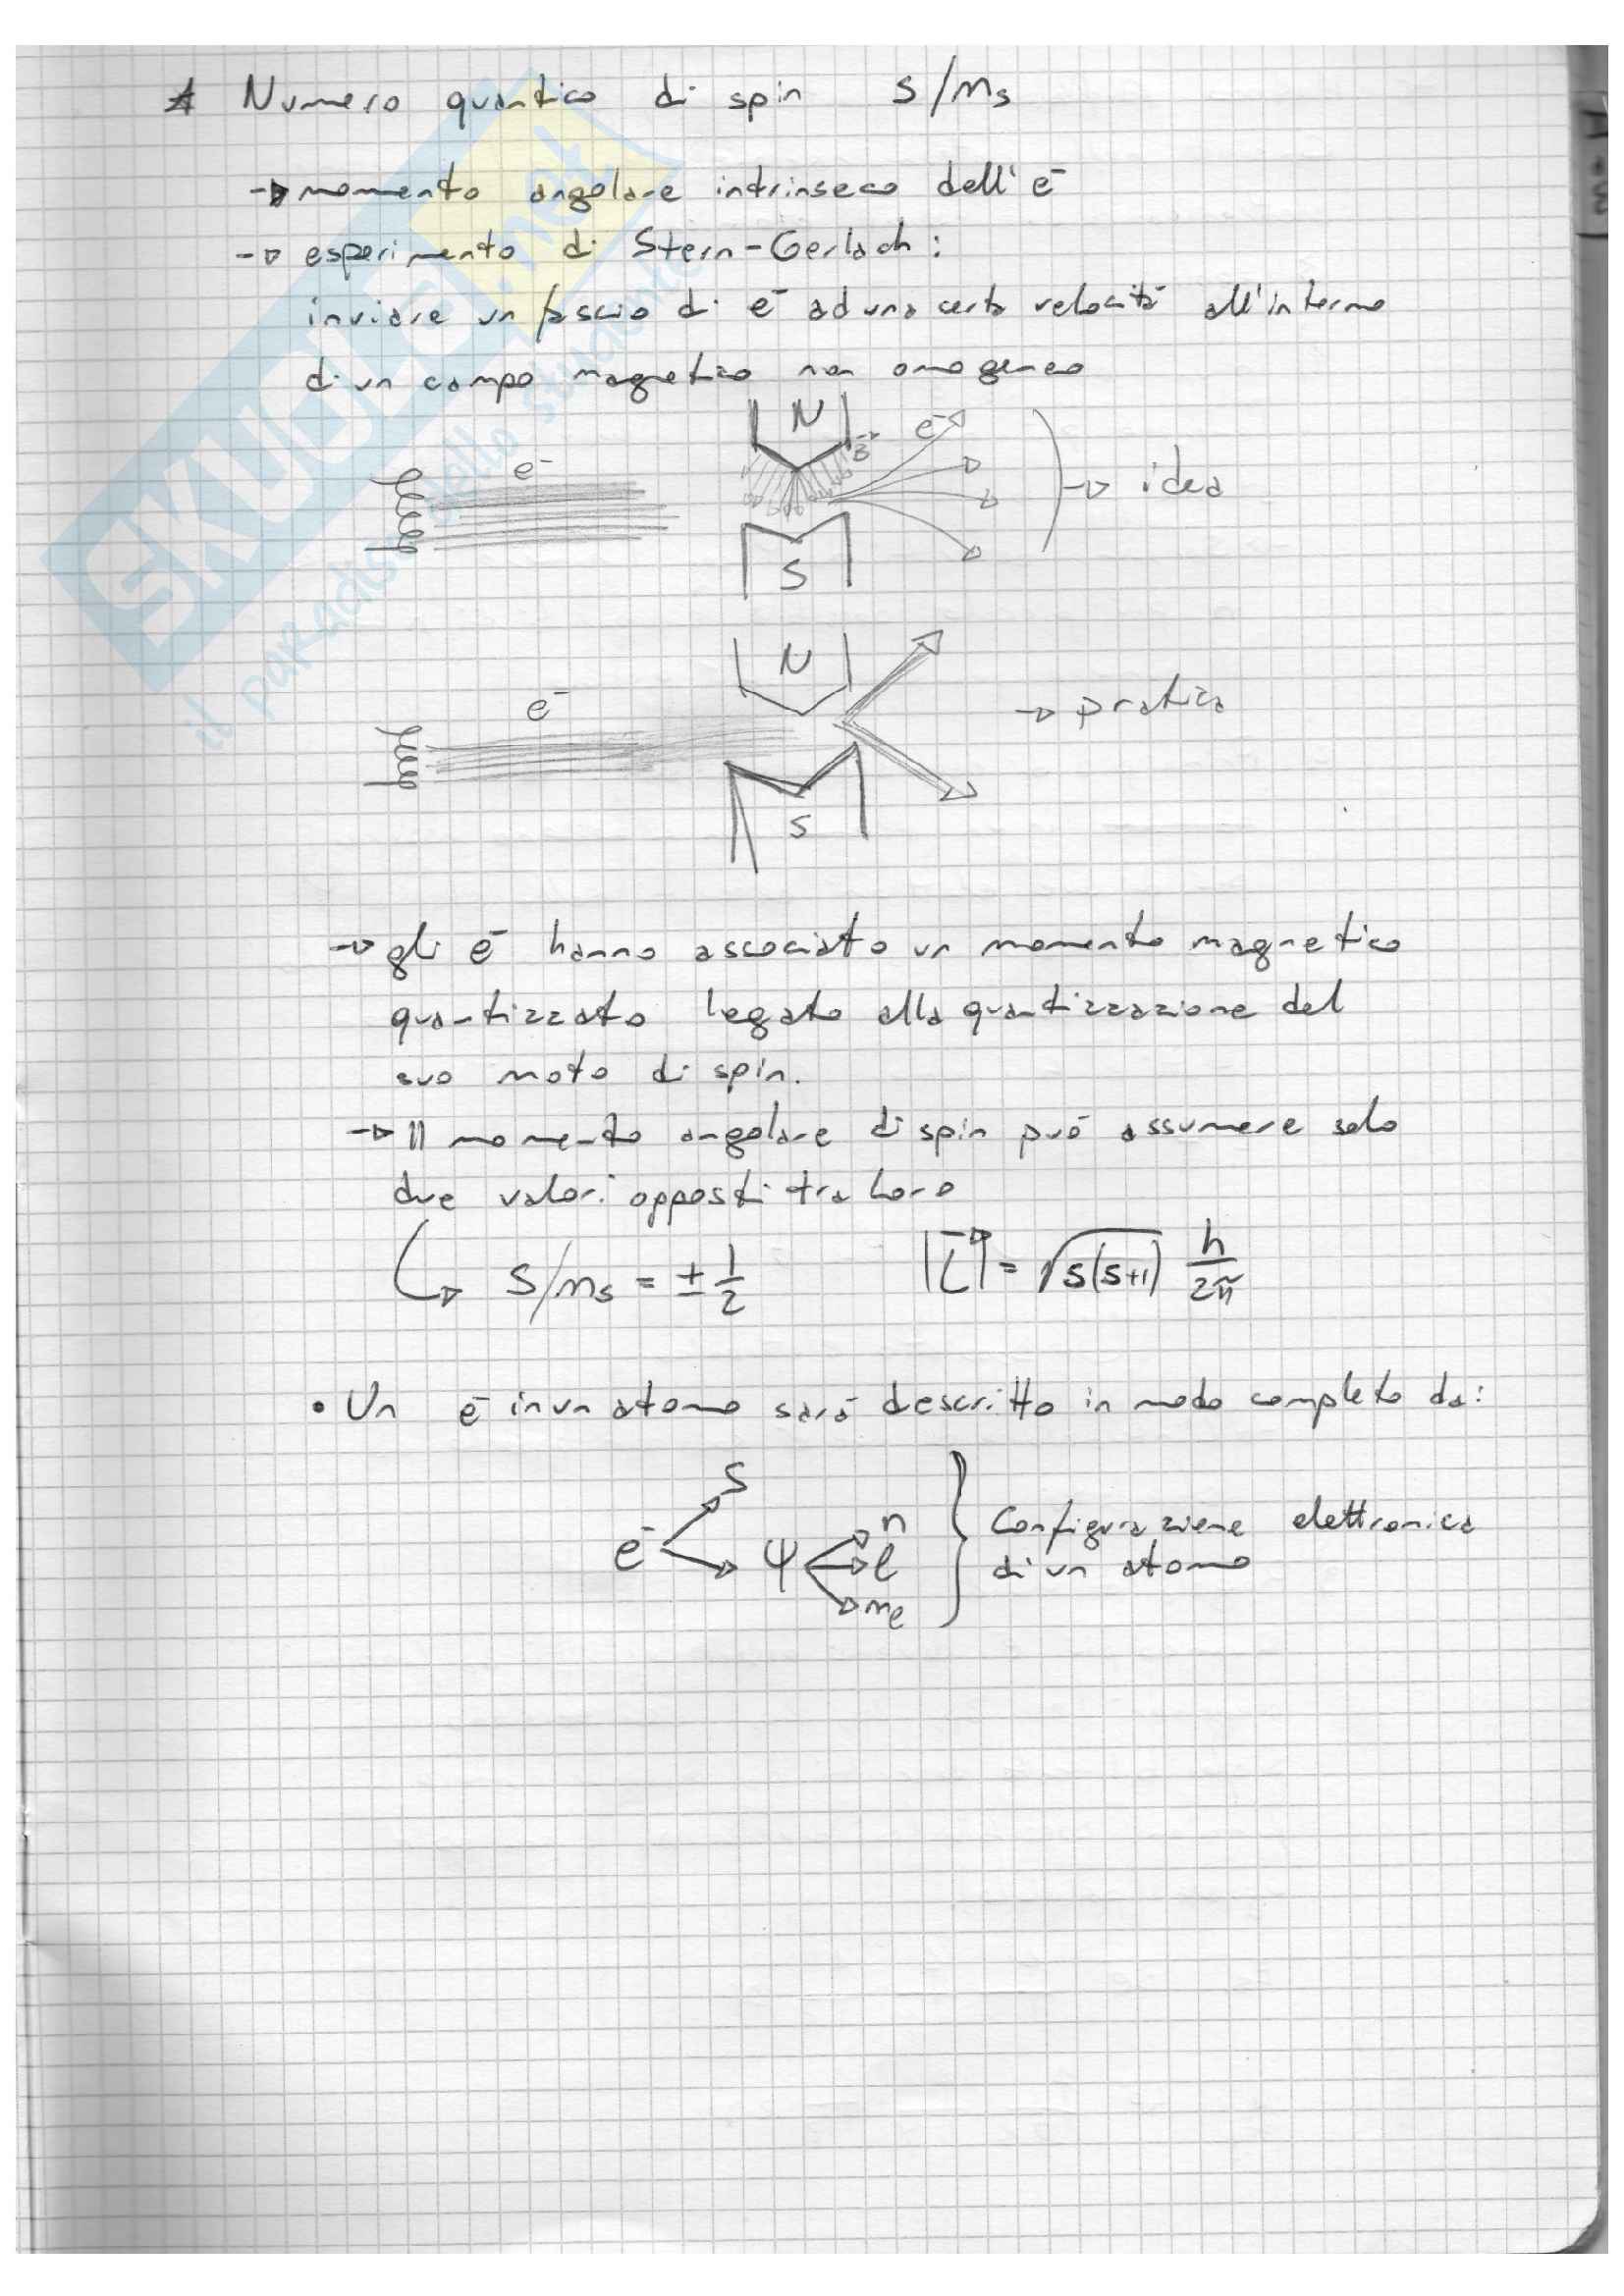 * Numero quantico di spin s/ms
→ momento angolare intrinseco dell'e⁻
→ esperimento di Stern-Gerlach:
inviare un fascio di e⁻ ad una certa velocità all'interno
di un campo magnetico non omogeneo
N
e⁻
B
e⁻
→ idea
S
N
e⁻
→ pratica
S
→ gli e⁻ hanno associato un momento magnetico
quantizzato legato alla quantizzazione del
suo moto di spin.
→ Il momento angolare di spin può assumere solo
due valori opposti tra loro
↳ s/ms = ± 1/2 |L⃗| = √s(s+1) h/2π
• Un e⁻ in un atomo sarà descritto in modo completo da:
s
e⁻ ψ n l ml } Configurazione elettronica
di un atomo
SKUOLA.net
il paradiso dello studente